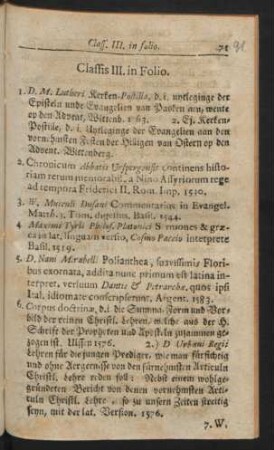 Class. III. in folio. 71
91
Classis III. in Folio.
1. D. M. Lutheri Kerken-Postilla, d. i. uytlegginge der
Episteln unde Evangelien van Paschen an, wente
up den Advent, Wittenb. 1563. 2. Ej. Kerken-
Postille, d. i. Uytlegginge der Evangelien an den
vornehmsten Festen der Hiligen van Ostern op den
Advent. Wittenberg.
2. Chronicum Abbatis Urspergensis continens histo-
riam rerum memorabil. a Nino Assyriorum rege
ad tempora Friderici II, Rom. Imp. 1540.
3. W. Musculi Dusani Commentarius in Evangel.
Matth. 3. Tom. digestus. Basil. 1544.
4. Maximi Tyrii Philos. Platonici Sermones & græ-
ca in lat. linguam versio, Cosmo Paccio interprete
Basil. 1519.
5. D. Nani Mirabell. Polianthea, suavissimis Flori-
bus exornata, addita nunc primum est latina in-
terpret. versuum Dantis & Petrarchæ, quos ipsi
Ital. idiomate conscripserunt. Argent. 1583.
6. Corpus doctrinæ, d. i. die Summa, Form und Vor-
bild der reinen Christl. Lehre, welche aus der H.
Schrift der Propheten und Aposteln zusammen ge-
zogen ist. Ulssen 1576. 2.) D Urbani Regii
Lehren für die jungen Prediger, wie man fürsichtig
und ohne Aergernisse von den fürnehmsten Articuln
Christl. Lehre reden soll: Nebst einem wohlge-
gründeten Bericht von denen vornehmsten Arti-
culn Christl. Lehre, so zu unsern Zeiten streitig
seyn, mit der lat. Version. 1576.
7. W.